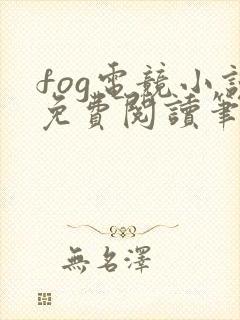 fog電競小說
免費閱讀筆
無名澤